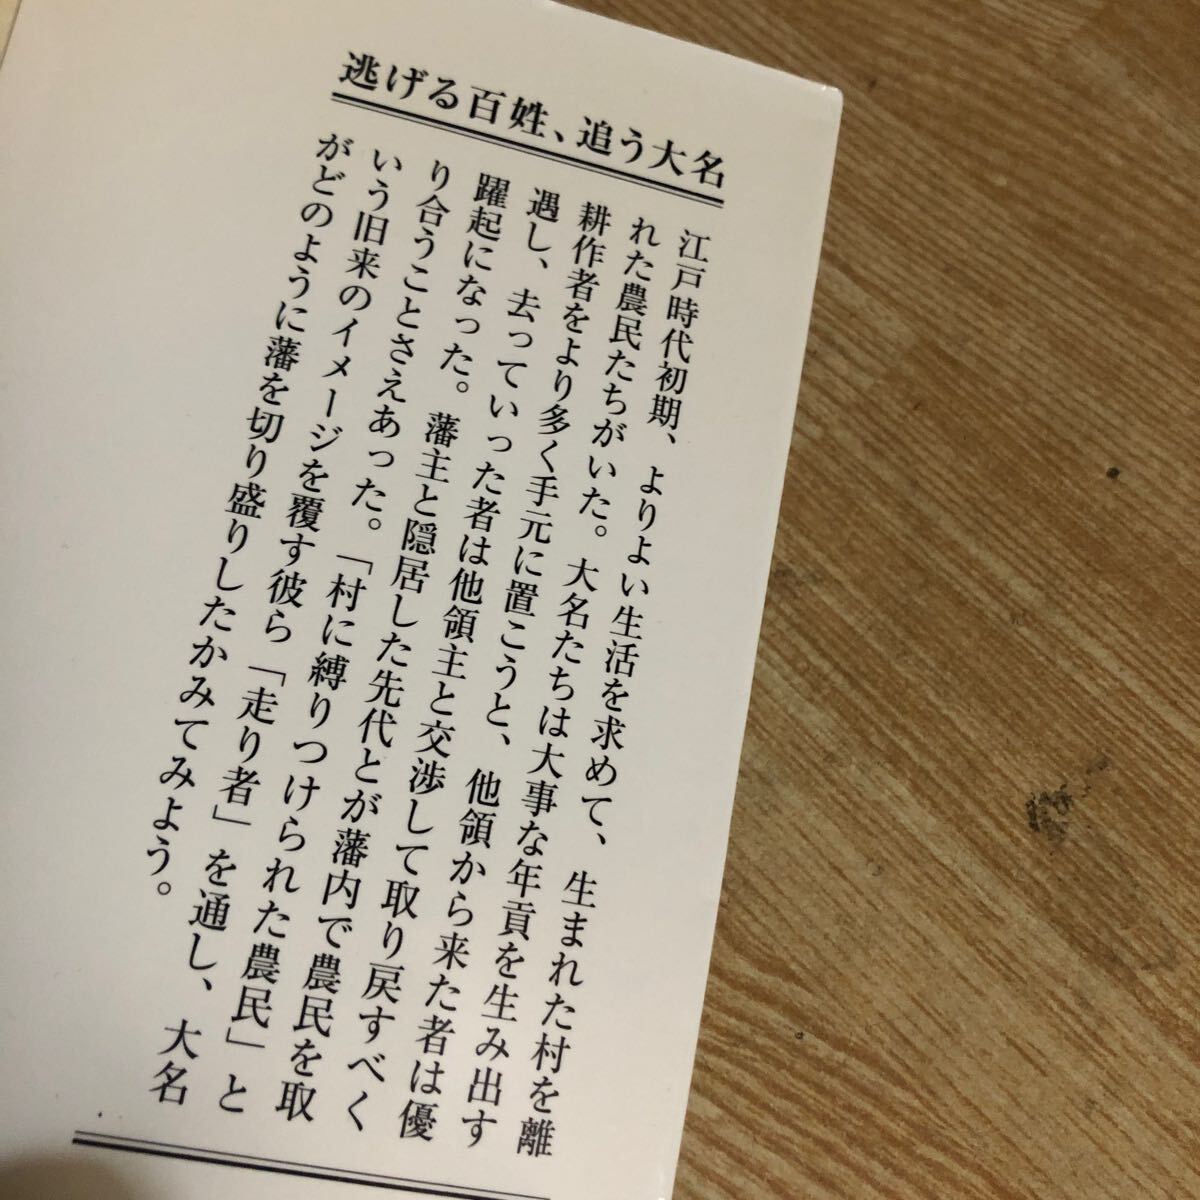 逃げる百姓、追う大名
江戸時代初期、よりよい生活を求めて、生まれた村を離
れた農民たちがいた。大名たちは大事な年貢を生み出す
耕作者をより多く手元に置こうと、他領から来た者は優
遇し、去っていった者は他領主と交渉して取り戻すべく
躍起になった。藩主と隠居した先代とが藩内で農民を取
り合うことさえあった。「村に縛りつけられた農民」と
いう旧来のイメージを覆す彼ら「走り者」を通し、大名
がどのように藩を切り盛りしたかみてみよう。